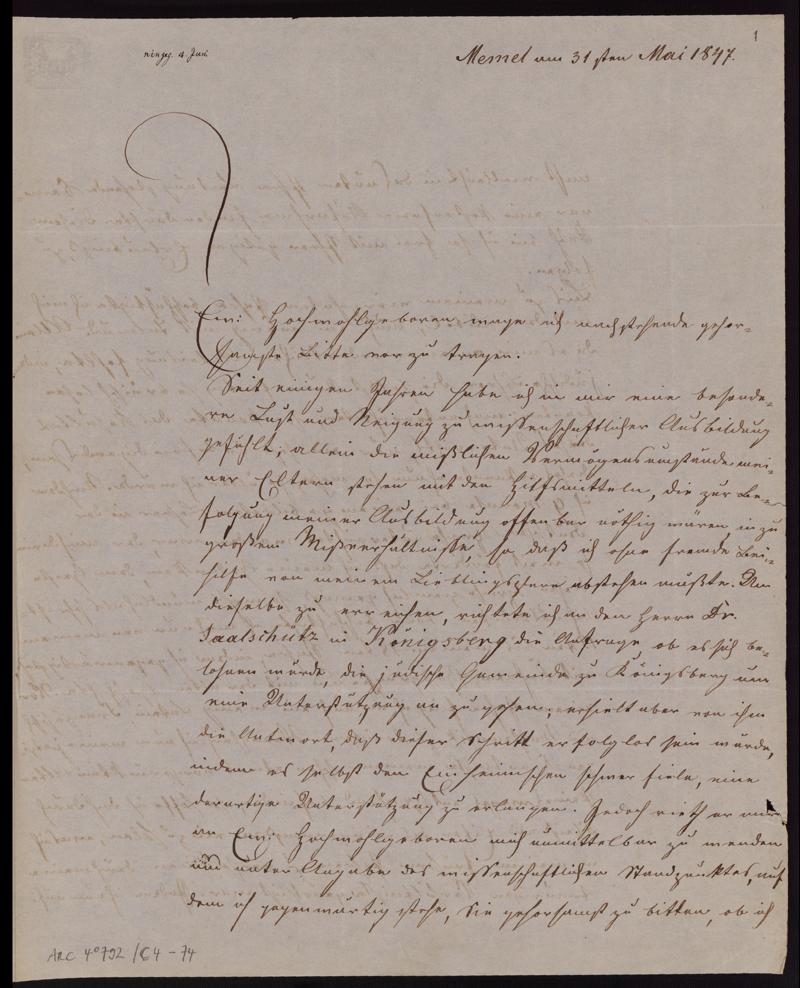 1
eingeg. 4. Juni
Memel am 31sten Mai 1847.
Ew: Hochwohlgeboren wage ich nachstehende gehor-
samste Bitte vor zu tragen.
Seit einigen Jahren habe ich in mir eine besonde-
re Lust und Neigung zu wissenschaftlicher Ausbildung
gefühlt; allein die mißlichen Vermögensumstände mei-
ner Eltern stehen mit den Hilfsmitteln, die zur Be-
folgung meiner Ausbildung offenbar nöthig wären, in zu
großem Mißverhältnisse, so daß ich ohne fremde Bei-
hilfe von meinem Lieblingsplane abstehen müßte. Um
dieselbe zu erreichen, richtete ich an den Herrn Dr.
Saalschütz in Königsberg die Anfrage, ob es sich be-
lohnen würde, die jüdische Gemeinde zu Königsberg um
eine Unterstützung an zu gehen; erhielt aber von ihm
die Antwort, daß dieser Schritt erfolglos sein würde,
indem es selbst den Einheimischen schwer fiele, eine
derartige Unterstützung zu erlangen. Jedoch rieth er mir
an Ew: Hochwohlgeboren mich unmittelbar zu wenden
und unter Angabe des wissenschaftlichen Standpunktes, auf
dem ich gegenwärtig stehe, Sie gehorsamst zu bitten, ob ich
ARC 4°792 /C4 - 74